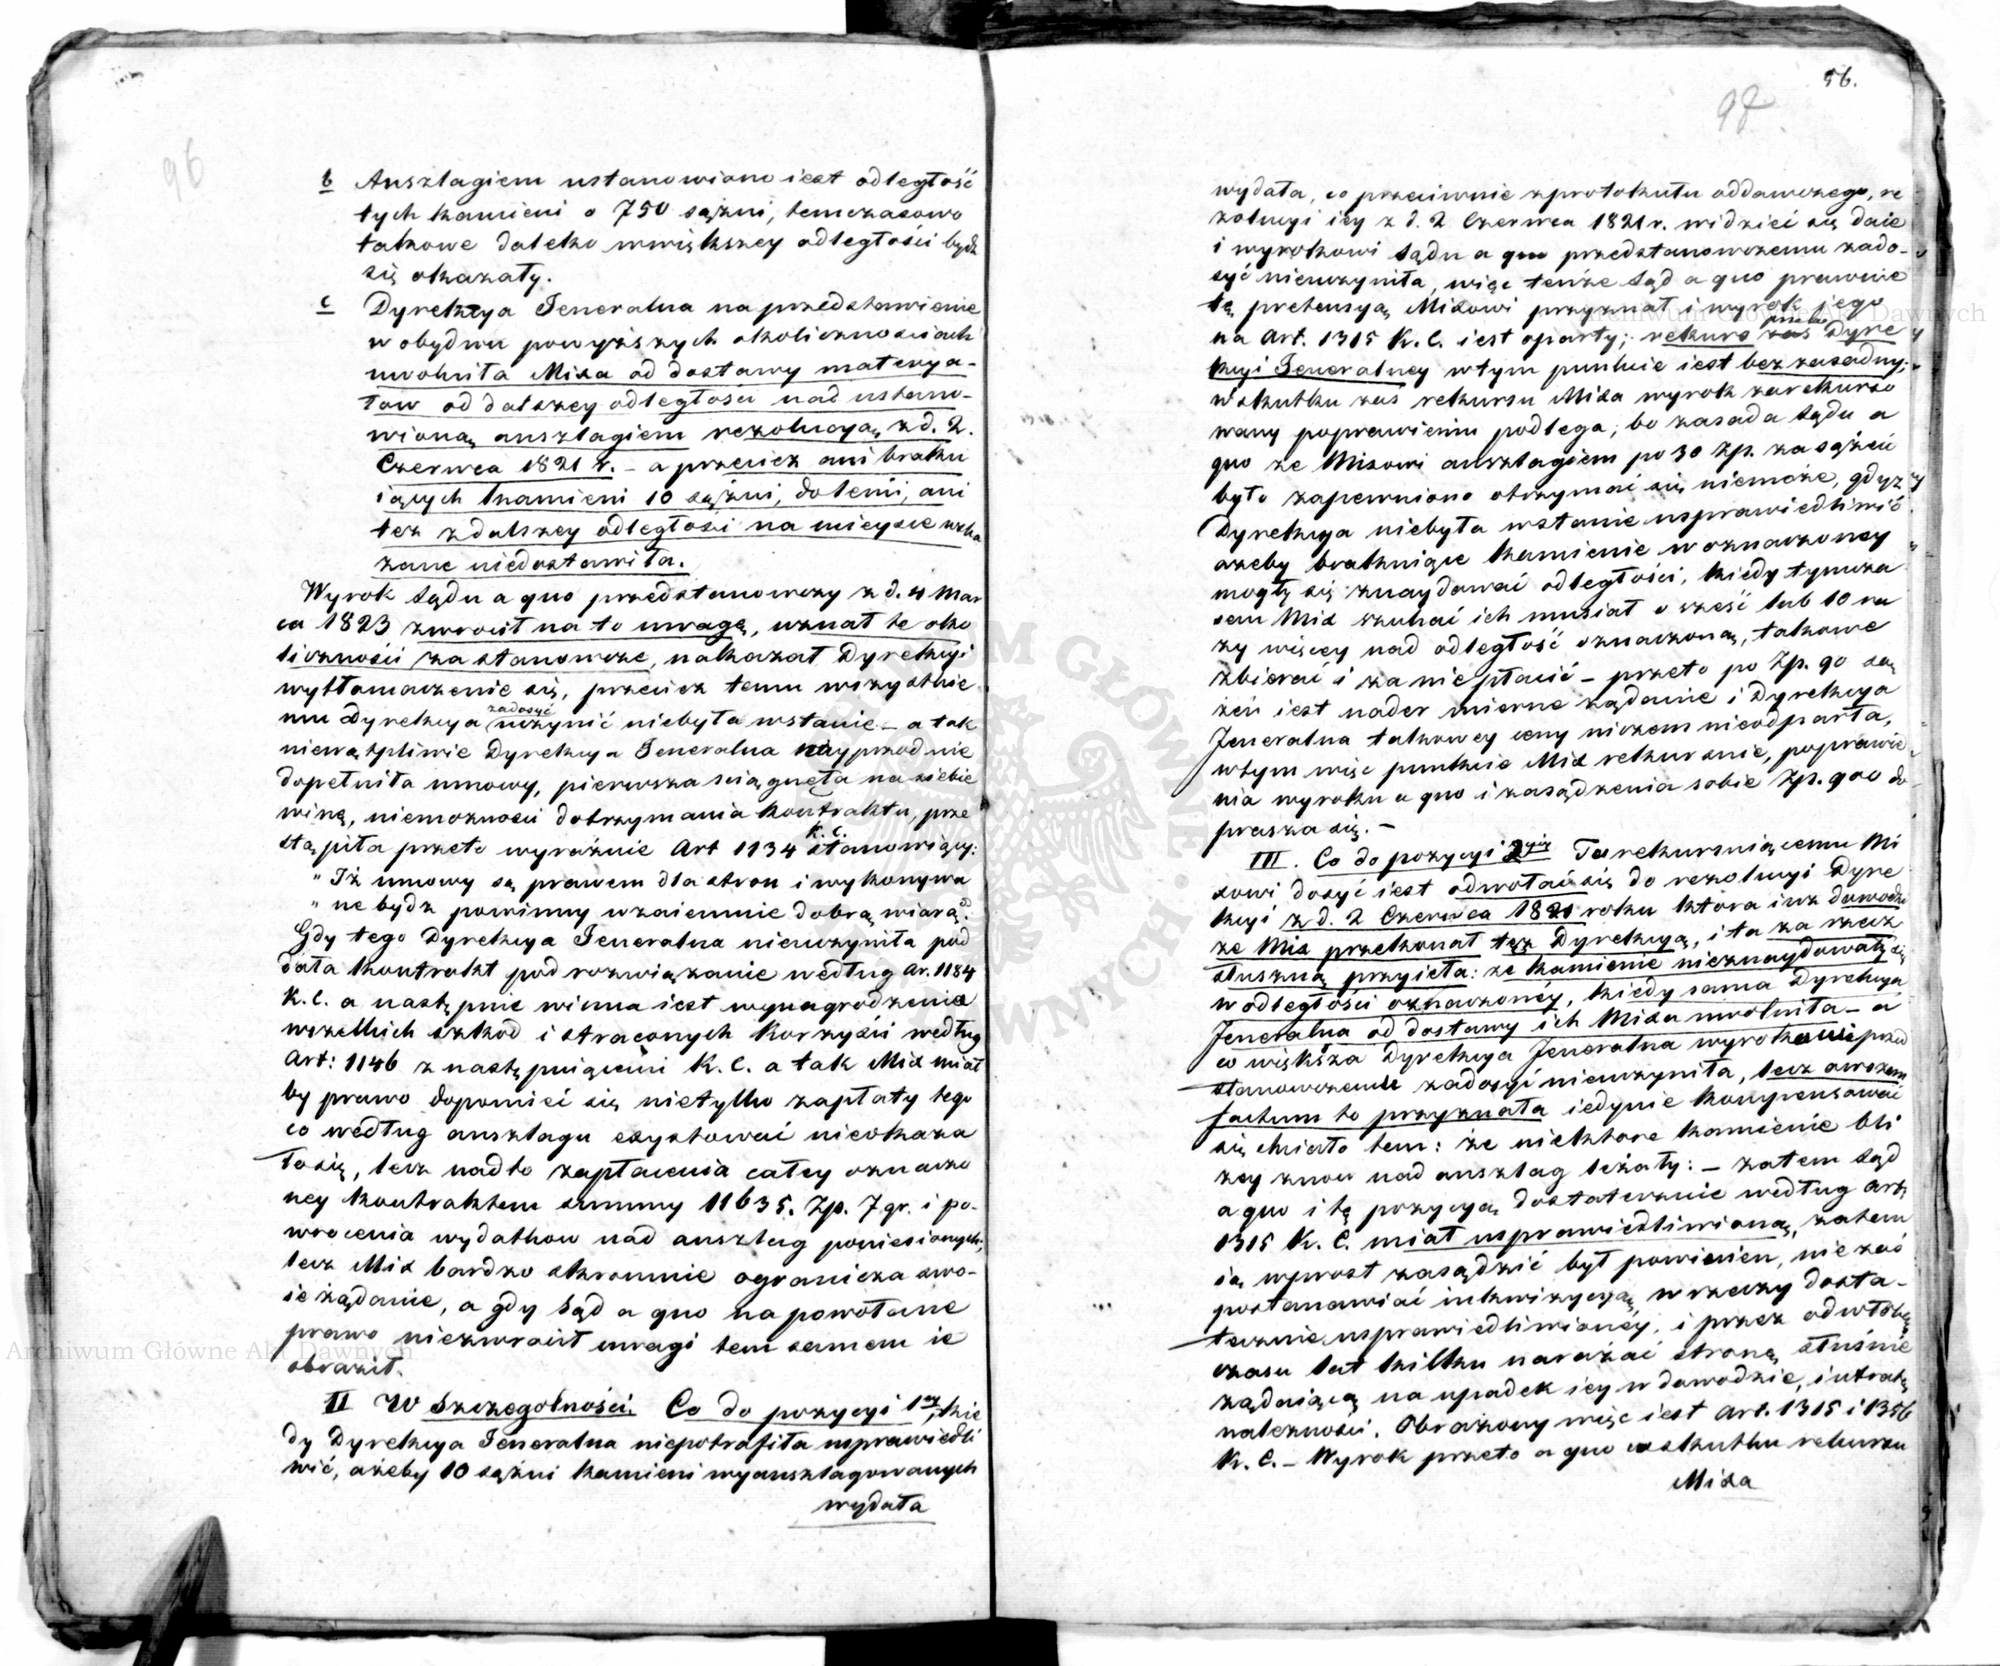 96
b Anszlagiem ustanowiono iest odległość
tych kamieni o 750 sążni, temczasowo
takowe daleko wwiększey odległości bydź
się okazały.
c Dyrekcya Jeneralna na przedstawienie
w obydwu powyższych okolicznościach
uwolniła Misa od dostawy materya-
łow od dalszey odległości nad ustano-
wioną anszlagiem rezolucyą z d. 2.
Czerwca 1821 r. – a przecież ani braku
iących kamieni 10 sążni, dolenii, ani
też z dalszey odległości na mieysce wska
zane niedostawiła.
Wyrok Sądu a quo przedstanowczy z d. 4 Mar
ca 1823 zwrocił na to uwagę, uznał te oko
liczności za stanowcze, nakazał Dyrekcyi
wytłomaczenie się, przecież temu wszystkie
mu Dyrekcya zadosyć uczynić niebyła wstanie – a tak
niewątpliwie Dyrekcya Jeneralna nayprzod nie
dopełniła umowy, pierwsza sciągnęła na siebie
winę, niemożności dotrzymania kontraktu, prze
stąpiła przeto wyraźnie Art 1134 K. C. stanowiący:
„ Iż umowy są prawem dla stron i wykonywa
„ ne bydź powinny wzaiemnie dobrą wiarą."
Gdy tego Dyrekcya Jeneralna nieuczyniła pod
dała kontrakt pod rozwiązanie według Ar. 1184
K. C. a następnie winna iest wynagrodzenie
wszelkich szkod i straconych korzyści według
Art: 1146 z następuiącemi K. C. a tak Mis miał
by prawo dopomieć się nietylko zapłaty tego
co według anszlagu exystować nieokaza
ło się, lecz nadto zapłacenia całey oznaczo
ney kontraktem summy 11635. Zp. 7 gr. i po-
wrocenia wydatkow nad anszlag poniesionych,
lecz Mis bardzo skromnie ogranicza swo-
ie żądanie, a gdy Sąd a quo na powołane
prawo niezwrocił uwagi tem samem ie
obraził.
II W Szczegolności. Co do pozycyi 1ey, kie
dy Dyrekcya Jeneralna niepotrafiła usprawiedli
wić, ażeby 10 sążni kamieni wyanszlagowanych
wydała
56.
97
wydała, co przeciwnie zprotokułu oddawczego, re
zolucyi iey z d. 2 Czerwca 1821 r. widzieć się daie
i wyrokowi Sądu a quo przedstanowczemu zado-
syć nieuczyniła, więc tenże Sąd a quo prawnie
tę pretensyą Misowi przyznał i wyrok jego
na Art. 1315 K. C. iest oparty; rekurs Dyre
kcyi Jeneralney wtym punkcie iest bezzasadny;
Wskutku zaś rekursu Misa wyrok zarekurso
wany poprawieniu podlega, bo zasada Sądu a
quo że Misowi anszlagiem po 30 Zp. za sążeń
było zapewniono otrzymać się niemoże, gdyż
Dyrekcya niebyła wstanie usprawiedliwić
ażeby brakuiące kamienie w oznaczoney
mogły się znaydować odległości, kiedy tymcza
sem Mis szukać ich musiał o sześć lub 10 ra
zy więcey nad odległość oznaczoną, takowe
zbierać i za nie płacić – przeto po Zp. 90 są
żeń iest nader mierne żądanie i Dyrekcya
Jeneralna takowey ceny niczem nieodparła,
wtym więc punkcie Mis rekursnie, poprawie
nia wyroku a quo i zasądzenia sobie Zp. 900 do
prasza się. –
III. Co do pozycyi 2giey Tu rekursuiącemu Mi
sowi dosyć iest odwołać się do rezolucyi Dyre
kcyi z d. 2 Czerwca 1821 roku ktora iuż dowodzi
że Mis przekonał tęż Dyrekcyą, i ta za rzecz
słuszną przyięła: że kamienie nieznaydowały się
w odległości oznaczonéy, kiedy sama Dyrekcya
Jeneralna od dostawy ich Misa uwolniła – a
co większa Dyrekcya Jeneralna wyrokowi przed
stanowczemu zadosyć nieuczyniła, lecz owszem
factum to przyznała iedynie kompensować
się chciało tem: że niektore kamienie bli
żey znow nad anszlag leżały: – zatem Sąd
a quo i tę pozycyą dostatecznie według Art:
1315 K. C. miał usprawiedliwioną, zatem
ią wprost zasądzić był powinien, nie zaś
postanawiać inkwizycyą w rzeczy dosta-
tecznie usprawiedliwionéy, i przez odwłokę
czasu lat kilku narażać stronę słusznie
żądaiącą na upadek iey w dowodzie, i utratę
należności. Obrażony więc iest Art. 1315 i 1356
K. C. – Wyrok przeto a quo wskutku rekursu
Misa